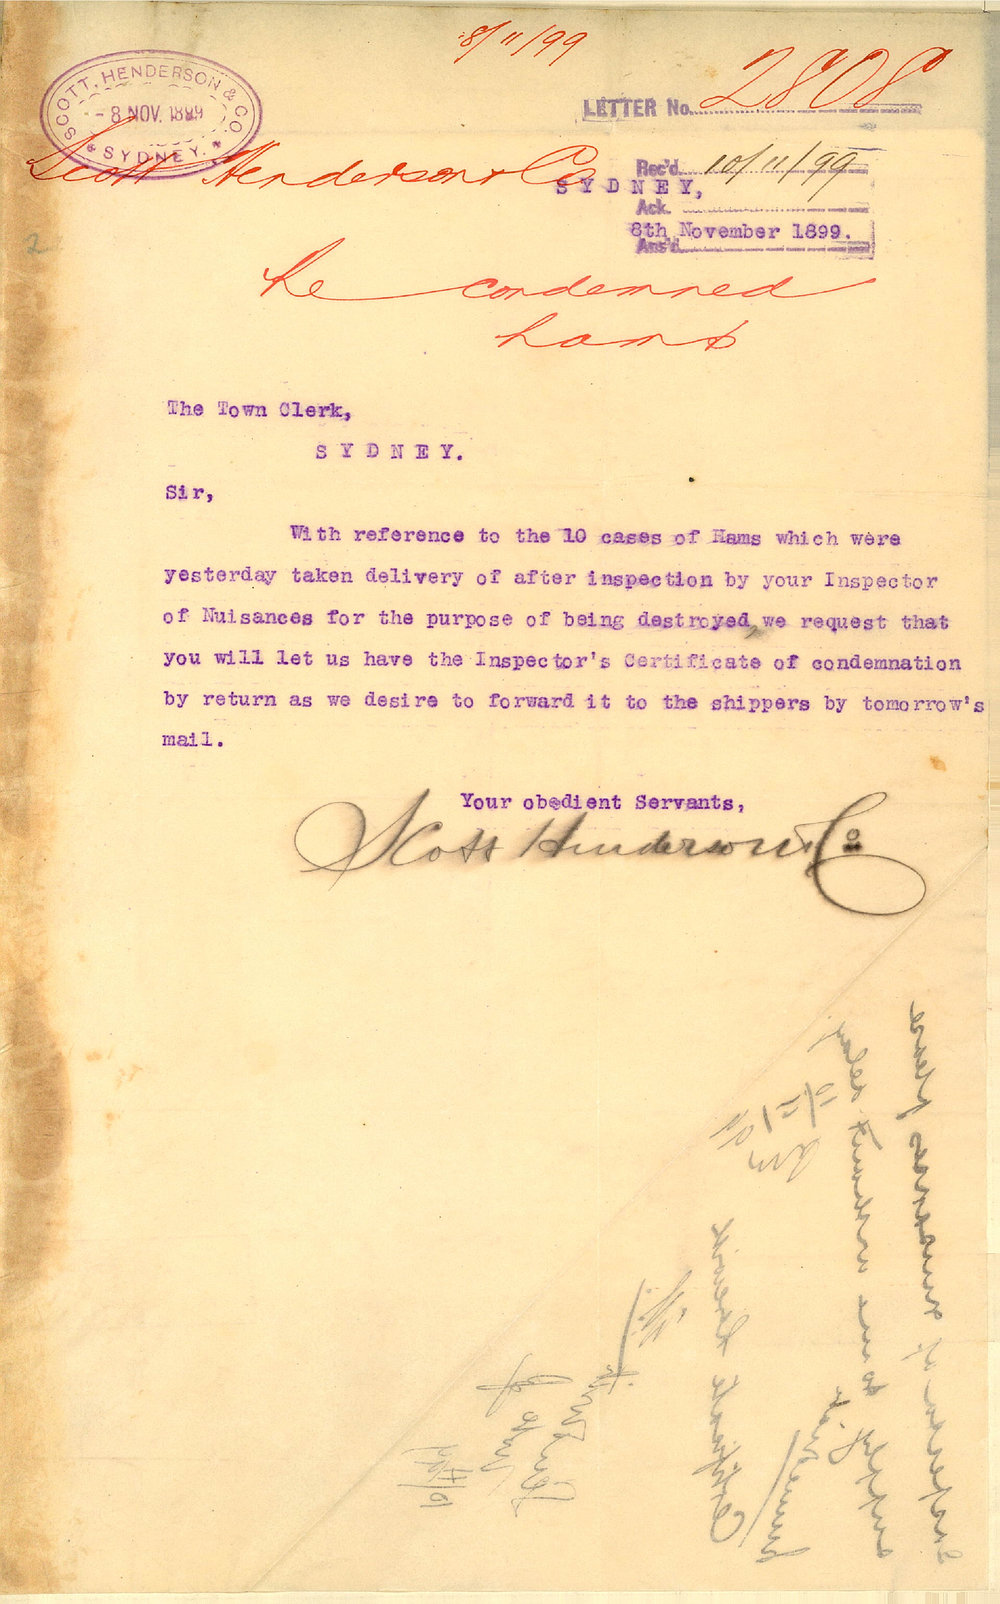 8/11/99
LETTER No. 2808
SCOTT, HENDERSON & CO.
- 8 NOV. 1899
* SYDNEY. *
Scott Henderson & Co
Rec'd. 10/11/99
SYDNEY,
Ack.
8th November 1899.
Ans'd.
2
Re condemned
hams
The Town Clerk,
SYDNEY.
Sir,
With reference to the 10 cases of Hams which were
yesterday taken delivery of after inspection by your Inspector
of Nuisances for the purpose of being destroyed, we request that
you will let us have the Inspector's Certificate of condemnation
by return as we desire to forward it to the shippers by tomorrow's
mail.
Your obedient Servants,
Scott Henderson & Co
Inspector of nuisances please
supply to me without delay
Certificate herewith